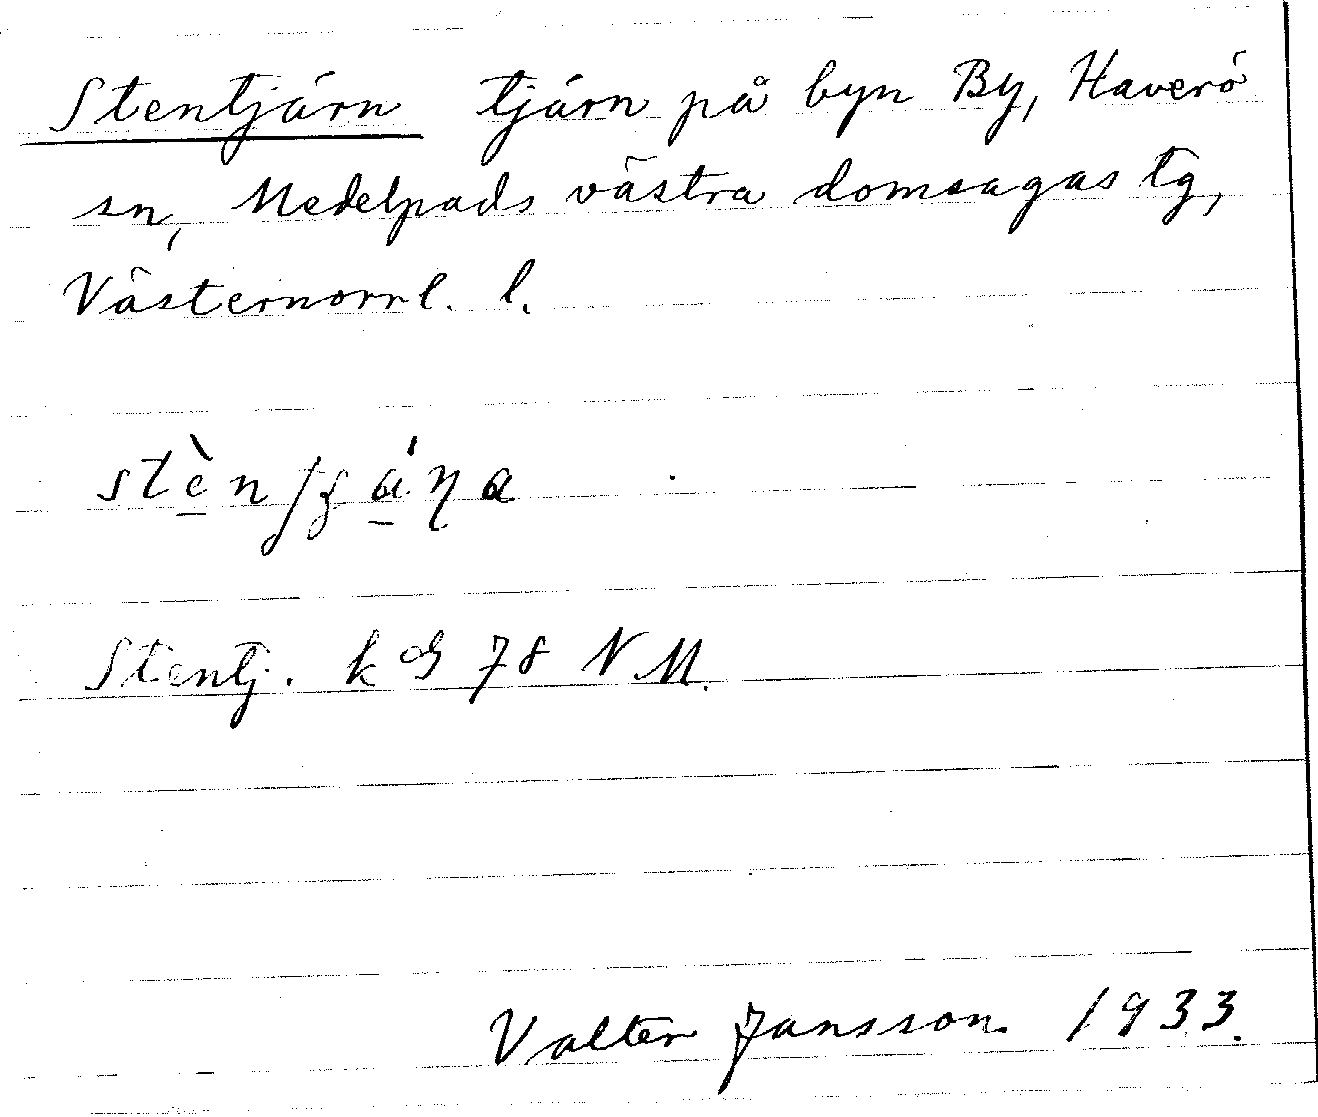 Stentjärn tjärn på byn By, Haverö
sn, Medelpads västra domsagas tg,
Västernorrl. l.
Stentj. k G 78 N M.
Valter Jansson 1933.